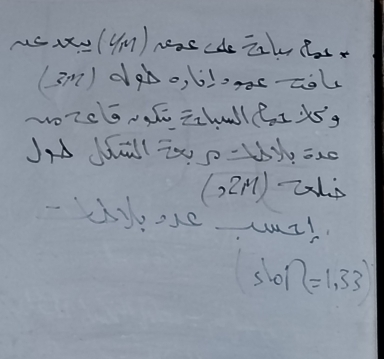 * حمام سباحة على عمق (4M) يبعد عنه
حافت عمود إنارة طوله (3M)
وكان حمام السباحة يتكون قاعه من
عدة بلاطات مربعة الشكل طول
ضلعه (2M,)
إحسب عدد بلاطات
(ماء n=1,33)